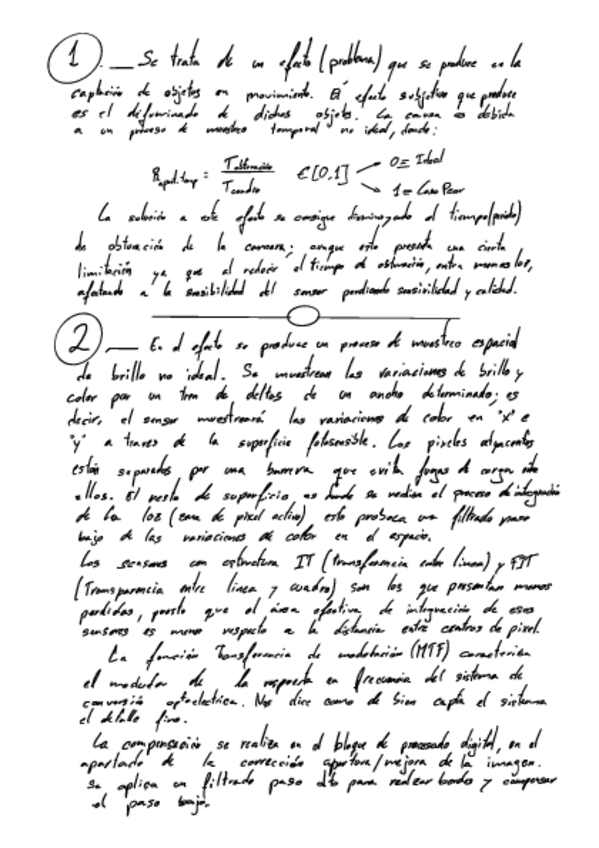 1. — Se trata de un efecto (problema) que se produce en la
captación de objetos en movimiento. El efecto subjetivo que produce
es el difuminado de dichos objetos. La causa es debida
a un proceso de muestreo temporal no ideal, donde:
R apert.temp = T obturación / T cuadro ∈ [0,1] 0 = Ideal
1 = Caso Peor
La solución a este efecto se consigue disminuyendo el tiempo(periodo)
de obturación de la camara; aunque esto presenta una cierta
limitación ya que al reducir el tiempo de obturación, entra menos luz,
afectando a la sensibilidad del sensor perdiendo sensivilidad y calidad.
2 — En el efecto se produce un proceso de muestreo espacial
de brillo no ideal. Se muestrean las variaciones de brillo y
color por un tren de deltas de un ancho determinado; es
decir, el sensor muestreará las variaciones de color en "x" e
"y" a traves de la superficie fotosensible. Los pixeles adyacentes
están separados por una barrera que evita fugas de carga entre
ellos. El resto de superficie es donde se realiza el proceso de integración
de la luz (zona de pixel activo) esto proboca un filtrado paso
bajo de las variaciones de color en el espacio.
Los sensores con estructura IT (transferencia entre linea) y FIT
(Transparencia entre linea y cuadro) son los que presentan menos
perdidas, puesto que el área efectiva de integración de esos
sensores es menor respecto a la distancia entre centros de pixel.
La función Transferencia de modulación (MTF) caracteriza
el modulador de la respuesta en frecuencia del sistema de
conversión optoelectrica. Nos dice como de bien capta el sistema
el detalle fino.
La compensación se realiza en el bloque de procesado digital, en el
apartado de la corrección apertura/mejora de la imagen.
Se aplica un filtrado paso alto para realzar bordes y compensar
el paso bajo.